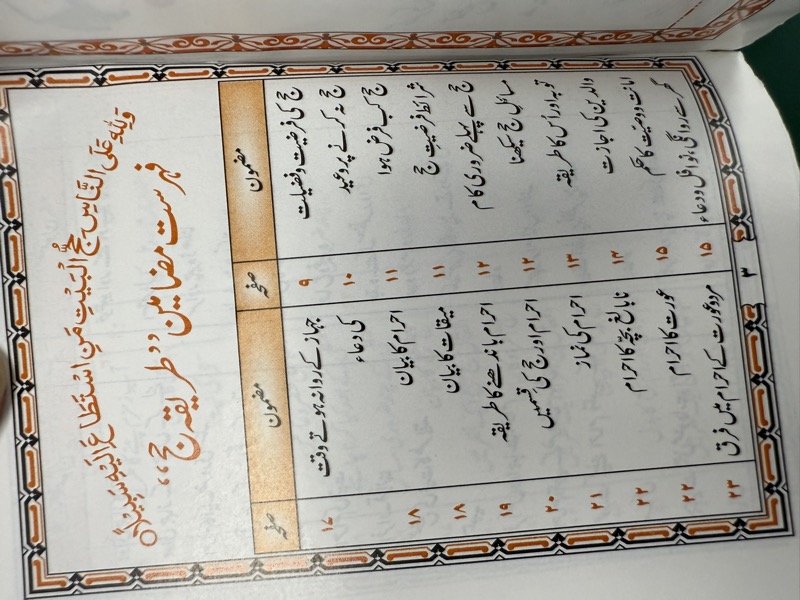 وَلِلّٰهِ عَلَى النَّاسِ حِجُّ الْبَيْتِ مَنِ اسْتَطَاعَ اِلَيْهِ سَبِيْلًا
فہرست مضامین ”طریقہ حج“
مضمون صفحہ مضمون صفحہ
حج کی فرضیت و فضیلت ۹ جہاز کے روانہ ہوتے وقت
حج نہ کرنے پر وعید ۱۰ کی دعاء ۱۷
حج کب فرض ہوا ۱۱ احرام کا بیان ۱۸
شرائط فرضیتِ حج ۱۱ میقات کا بیان ۱۸
مسائل حج سیکھنا ۱۲ احرام باندھنے کا طریقہ ۱۹
حج سے پہلے ضروری کام ۱۲ احرام اور حج کی قسمیں ۲۰
توبہ اور اُس کا طریقہ ۱۳ احرام کی نماز ۲۱
والدین کی اجازت ۱۴ نابالغ بچّہ کا احرام ۲۲
امانت و وصیّت کا حکم ۱۵ عورت کا احرام ۲۲
گھر سے روانگی، نوافل و دعاء ۱۵ مرد و عورت کے احرام میں فرق ۲۳
۳